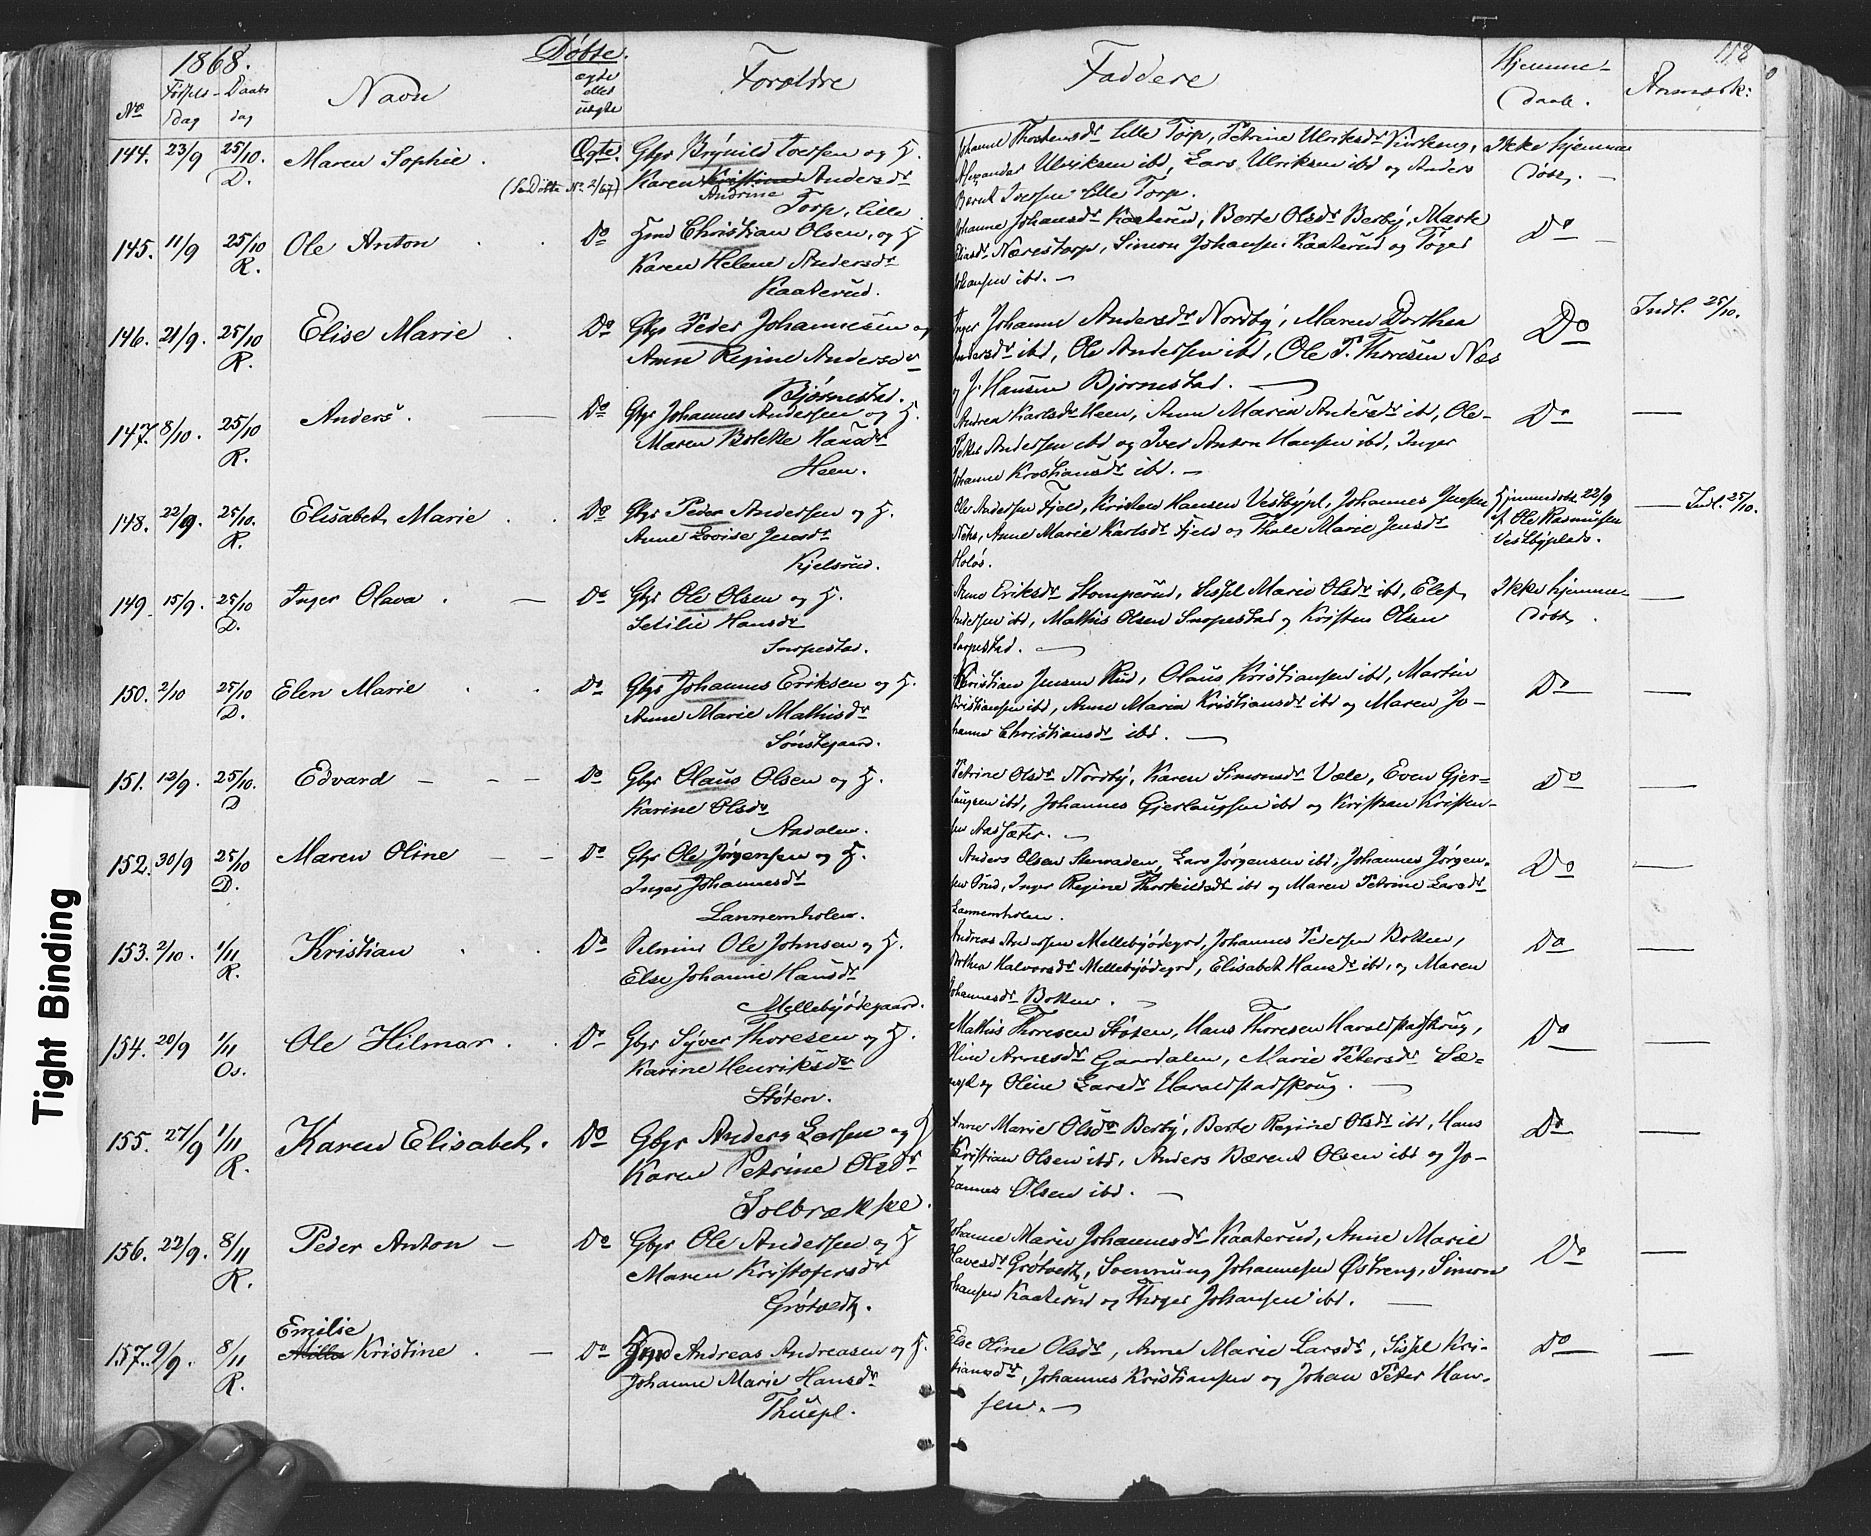 1868.
Døbte.
No
Fødsels-dag
Daabs dag
Navn
ægte eller uægte
Forældre
Faddere
Hjemme-daab.
Anmærk:
112
144. 23/9 25/10. D. Maren Sophie. Ægte. Gbr Brynild Iversen og H.
(Se Døbte No 2/67) Karen Kristine Andersdr
Andrine
Torp, lille
Johanne Thorstensdr Lille Torp, Petrine Ulriksdr Kirkeng,
Alexander Ulriksen ibd, Lars Ulriksen ibd og Anders
Bernt Iversen Lille Torp.
Ikke hjemme
døbt. -
145. 11/9 25/10 R. Ole Anton Do Hmd Christian Olsen, og H
Karen Helene Andersdr
Kaaterud.
Johanne Johansdr Kaaterud, Berte Olsdr Berby, Marte
Nærestorp, Simon Johansen Kaaterud og Tøger
Johansen ibd. -
Do
146. 21/9. 25/10 R. Elise Marie Do Gbr Peder Johannesen og
Ann Regine Andersdr
Bjørnestad.
Inger Johanne Andersdr Nordby, Maren Dorthea
Andersdr ibd, Ole Andersen ibd, Ole T. Thoresen Næs
og J. Hansen Bjørnestad. -
Do
Indl. 25/10.
147. 8/10. 25/10 R. Anders. Do Gbr Johannes Andersen og H.
Maren Bolette Hansdr
Heen.
Andrea Karlsdr Heen, Anne Maria Andersdr ib, Ole
Peter Andersen ibd og Iver Anton Hansen ibd, Inger
Johanne Kristiansdr ibd. -
Do
148. 22/9. 25/10. R. Elisabet Marie Do Gbr Peder Andersen og H.
Anne Lovise Jensdr
Kjelsrud.
Ole Andersen Fjeld, Kristen Hansen Vestbypl, Johannes Jensen
Anne Marie Karlsdr Fjeld og Thale Marie Jensdr
Holøs.
Hjemmedøbt 22/9
af Ole Rasmussen
Vestbyplads.
Indl. 25/10.
149 15/9. 25/10 D. Inger Olava. Do Gbr Ole Olsen og H.
Sesilie Hansdr
Snopestad.
Anne Eriksdr Stomperud, Sissel Marie Olsdr ibd, Elef
Andersen ibd, Mathis Olsen Snopestad og Kristen Olsen
Snopestad. -
Ikke hjemme-
døbt.
150. 2/10 25/10 D. Elen Marie Do Gbr Johannes Eriksen og H.
Anne Marie Mathisdr
Sønstegaard.
Kristian Jensen Rud, Olaus Kristiansen ibd, Martin
Kristiansen ibd, Anne Maria Kristiansdr ibd og Maren Jo-
hanne Christiansdr ibd. -
Do
151. 12/9. 25/10. D Edvard Do Gbr Olaus Olsen og H.
Karine Olsdr
Aadalen.
Petrine Olsdr Nordby, Karen Simonsdr Væle, Even Gjer-
laugsen ibd, Johannes Gjerlaugsen ibd og Kristian Kristen-
sen Aassæter. -
Do
152. 30/9 25/10 D. Maren Oline Do Gbr Ole Jørgensen og H.
Inger Johannesdr
Lannemholen.
Anders Olsen Stenraden, Lars Jørgensen ibd, Johannes Jørgen-
sen Brud, Inger Regine Thorkildsdr ibd og Maren Petrine Larsdr
Lannemholen.
Do
153. 2/10. 1/11 R. Kristian Do Ole Johnsen og H.
Else Johanne Hansdr
Mellebyødegaard.
Andreas Andersen Mellebyødegrd, Johannes Pedersen Botten,
Dorthea Halvorsdr Mellebyødegrd, Elisabet Hansdr ibd, og Maren
Johannesdr Botten. -
Do
154. 20/9 1/11 Os. Ole Hilmar. Do Gbr Syver Thoresen og H.
Karine Henriksdr
Støten.
Mathis Thoresen Støten, Hans Thoresen Haraldstadskoug,
Oline Arnesdr Gaardalen, Marie Petersdr Sæ-
og Oline Larsdr Haraldstadskoug. -
Do
155. 27/9 1/11 R. Karen Elisabet. Do Gbr Anders Larsen og H
Karen Petrine Olsdr
Solbrække.
Anne Marie Olsdr Berby, Berte Regine Olsdr ibd, Hans
Kristian Olsen ibd, Anders Bærent Olsen ibd og Jo-
hannes Olsen ibd. -
Do
156. 22/9. 8/11 R. Peder Anton - Do Gbr Ole Andersen og H
Maren Kristofersdr
Grøtvedt.
Johanne Marie Johannesdr Kaaterud, Anne Marie
Olavesdr Grøtvedt, Svennung Johannesen Østreng, Simon
Johansen Kaaterud og Thøger Johansen ibd. -
Do
157. 9/9. 8/11 R. Emilie
Milla Kristine. Do Hmd Andreas Andreasen og H.
Johanne Marie Hansdr
Thuepl.
Else Oline Olsdr, Anne Marie Larsdr, Sissel Kri-
stiansdr, Johannes Kristiansen og Johan Peter Han-
sen. -
Do
Tight Binding